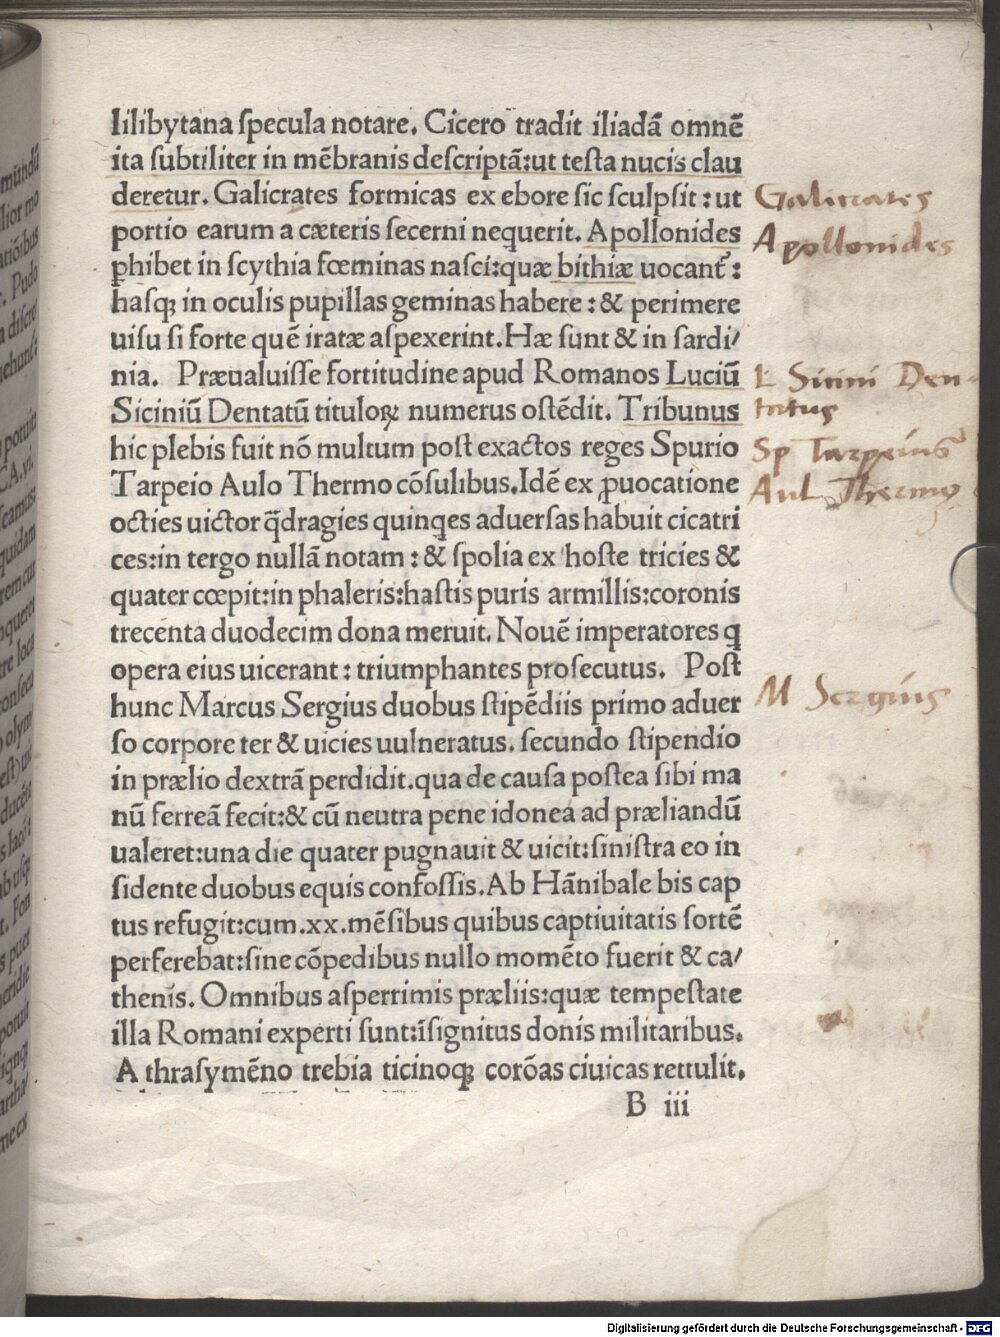 lilibytana ſpecula notare. Cicero tradit iliadã omnẽ
ita ſubtiliter in mẽbranis deſcriptã:ut teſta nucis clau
deretur. Galicrates formicas ex ebore ſic ſculpſit : ut
portio earum a cæteris ſecerni nequerit. Apollonides
ꝓhibet in ſcythia fœminas naſci:quæ bithiæ uocant᷑ :
haſqꝫ in oculis pupillas geminas habere : & perimere
uiſu ſi forte quẽ iratæ aſpexerint. Hæ ſunt & in ſardi/
nia. Præualuiſſe fortitudine apud Romanos Luciũ
Siciniũ Dentatũ tituloꝝ numerus oſtẽdit. Tribunus
hic plebis fuit nõ multum poſt exactos reges Spurio
Tarpeio Aulo Thermo cõſulibus. Idẽ ex ꝓuocatione
octies uictor q̃dragies quinq̃es aduerſas habuit cicatri
ces:in tergo nullã notam : & ſpolia ex hoſte tricies &
quater cœpit:in phaleris:haſtis puris armillis:coronis
trecenta duodecim dona meruit. Nouẽ imperatores q
opera eius uicerant : triumphantes proſecutus. Poſt
hunc Marcus Sergius duobus ſtipẽdiis primo aduer
ſo corpore ter & uicies uulneratus. ſecundo ſtipendio
in prælio dextrã perdidit.qua de cauſa poſtea ſibi ma
nũ ferreã fecit:& cũ neutra pene idonea ad præliandũ
ualeret:una die quater pugnauit & uicit:ſiniſtra eo in
ſidente duobus equis confoſſis. Ab Hãnibale bis cap
tus refugit:cum.xx.mẽſibus quibus captiuitatis ſortẽ
perferebat:ſine cõpedibus nullo momẽto fuerit & ca/
thenis. Omnibus aſperrimis præliis:quæ tempeſtate
illa Romani experti ſunt:ĩſignitus donis militaribus.
A thraſymẽno trebia ticinoqꝫ corõas ciuicas rettulit.
B iii
Galicrates
Apollonides
L Sicini Den-
tatus
Sp Tarpeius
Aul Thermo
M Sergius
Digitalisierung gefördert durch die Deutsche Forschungsgemeinschaft - DFG